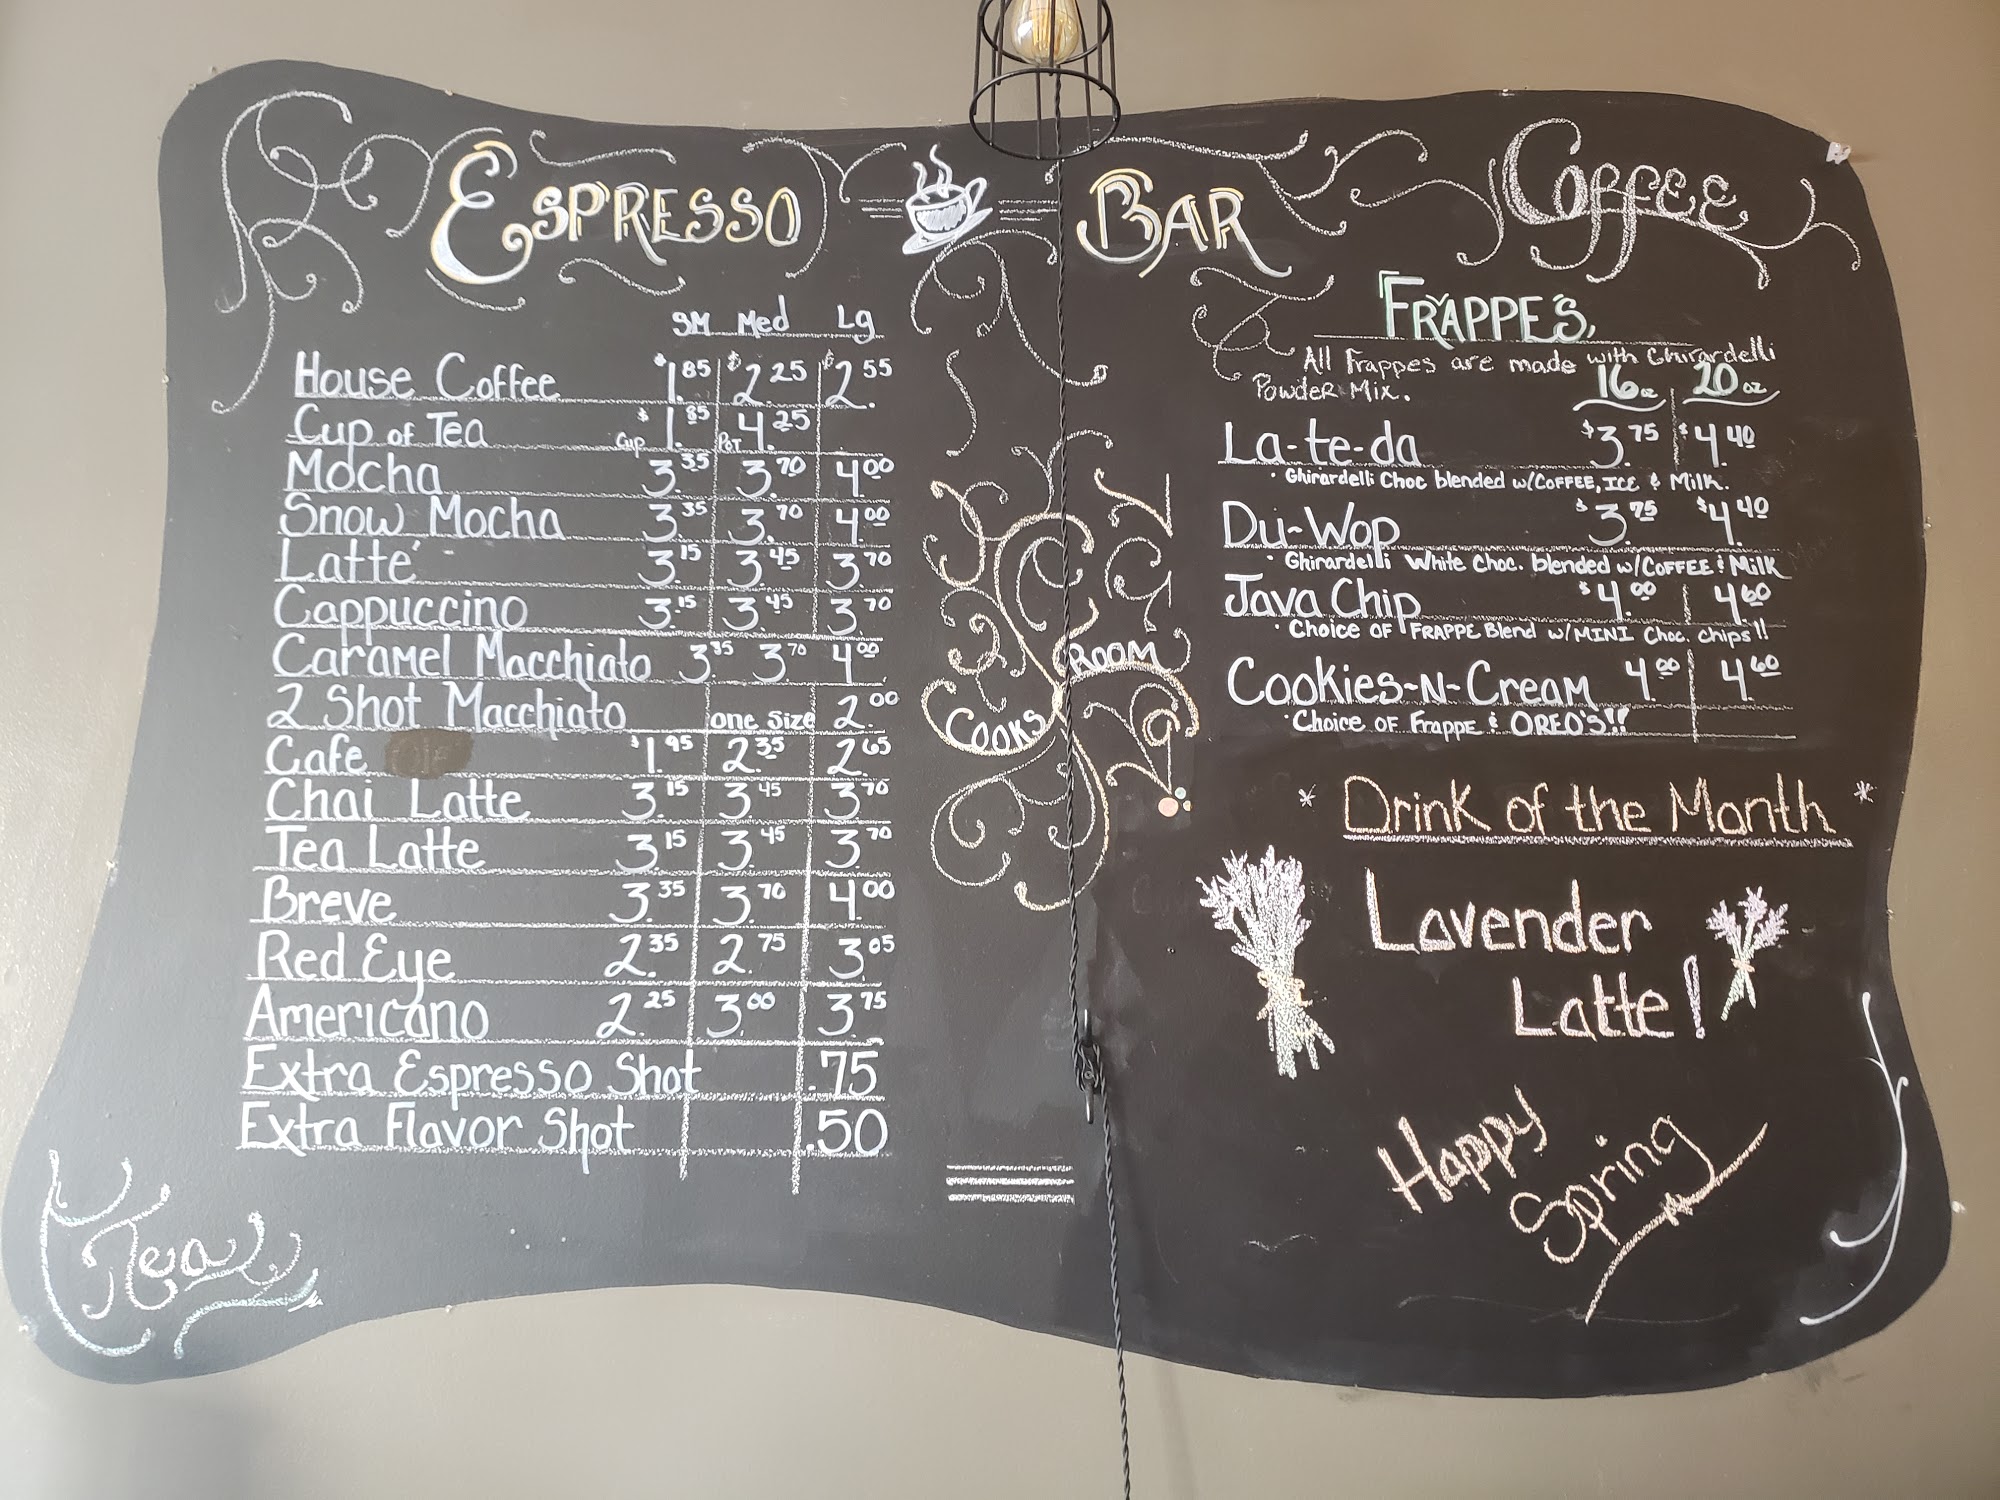 Espresso Bar
Coffee
SM Med Lg
House Coffee $1.85 $2.25 $2.55
Cup of Tea Cup $1.85 Pot 4.25
Mocha 3.35 3.70 4.00
Snow Mocha 3.35 3.70 4.00
Latte' 3.15 3.45 3.70
Cappuccino 3.15 3.45 3.70
Caramel Macchiato 3.35 3.70 4.00
2 Shot Macchiato one Size 2.00
Cafe $1.95 2.35 2.65
Chai Latte 3.15 3.45 3.70
Tea Latte 3.15 3.45 3.70
Breve 3.35 3.70 4.00
Red Eye 2.35 2.75 3.05
Americano 2.25 3.00 3.75
Extra Espresso Shot .75
Extra Flavor Shot .50
Tea
Cooks Room
Frappe's
All Frappes are made with Ghirardelli
Powder Mix.
16oz 20oz
La-te-da $3.75 $4.40
· Ghirardelli Choc blended w/COFFEE, ICE & Milk.
Du-Wop $3.75 $4.40
· Ghirardelli White Choc. blended w/COFFEE & Milk
Java Chip $4.00 4.60
· Choice OF FRAPPE Blend w/MINI Choc. chips!!
Cookies-N-Cream 4.00 4.60
· Choice OF Frappe & OREO'S!!
* Drink of the Month *
Lavender
Latte!
Happy
Spring